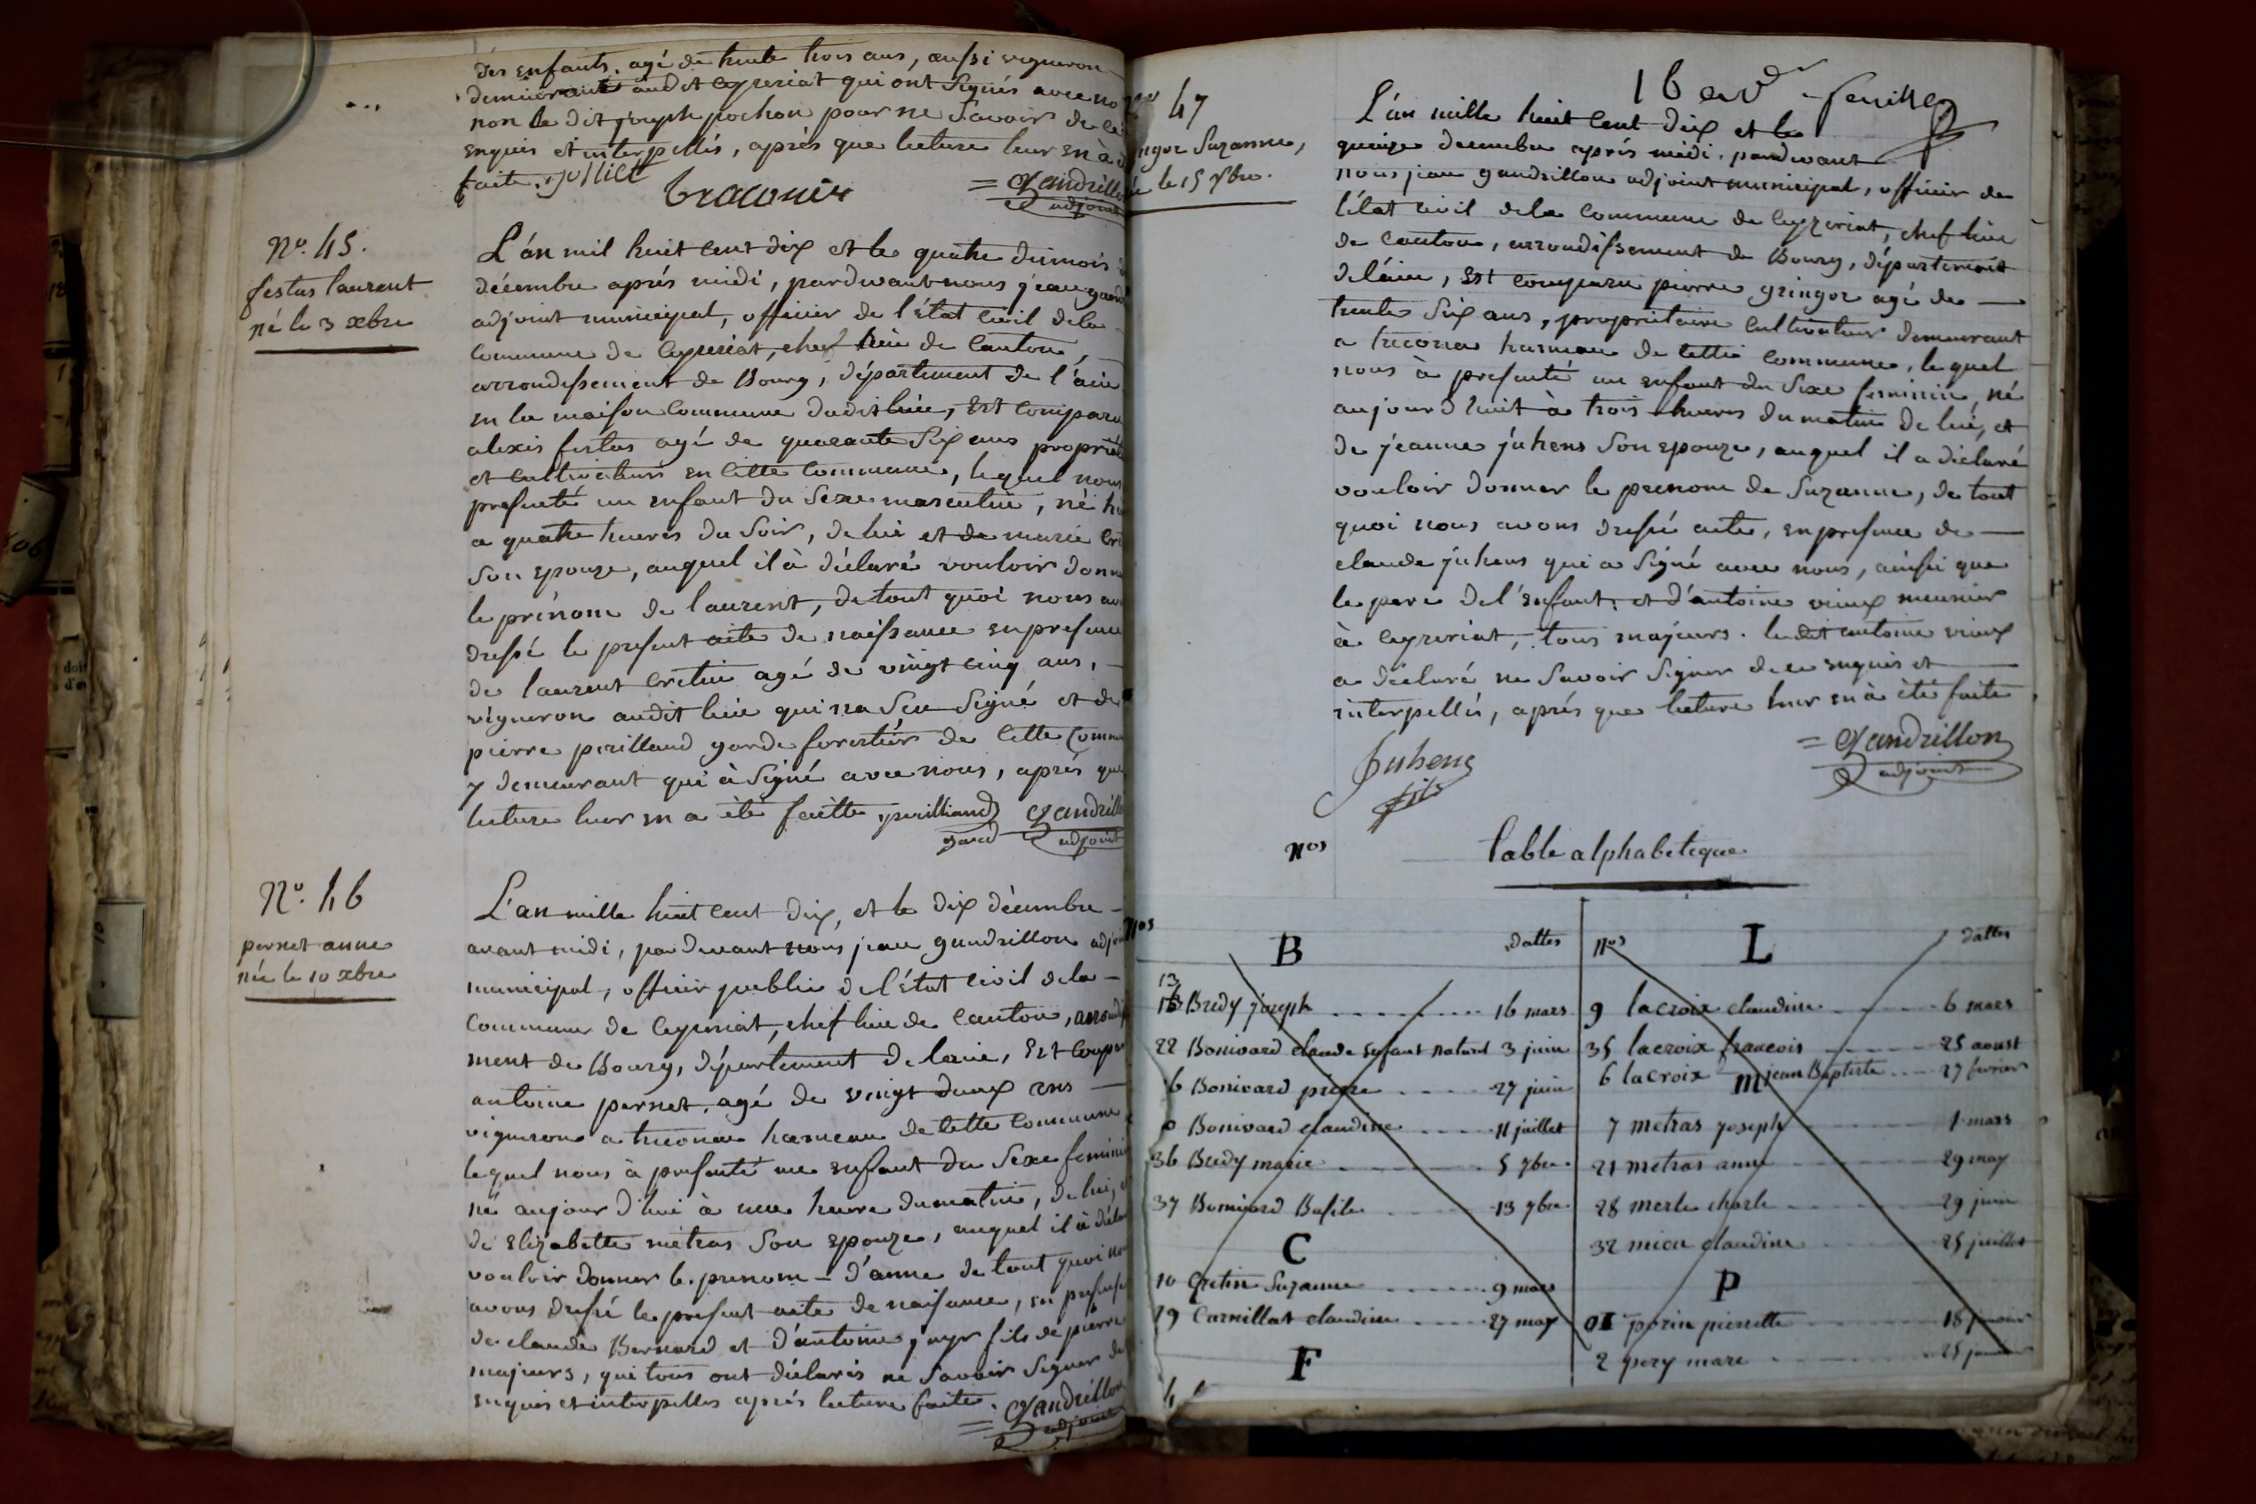 des enfants, agé de trente trois ans, aussi vigneron
demeurant audit ceyzeriat qui ont signés avec no
non le dit joseph pochon pour ne savoir de ce
enquis et interpellés, aprés que lecture leur en à
faite.
= Gandrillo
adjoint
N.º 45.
festas laurent
né le 3 xbre
L'an mil huit cent dix et le quatre du mois
décembre aprés midi, pardevant nous jean gand
adjoint municipal, officier de l'état civil dela
commune de Ceyzeriat, chef lieu de Canton,
arrondissement de Bourg, département de l'ain
en la maison commune dudit lieu, Est comparu
alexis festas agé de quarante six ans propriét
et cultivateur en cette commune, lequel nous
presenté un enfant du sexe masculin, né hi
a quatre heures du soir, de lui et de marie cre
son epouze, auquel il à déclaré vouloir donn
le prénom de laurent, de tout quoi nous av
dressé le present acte de naissance en presence
de laurent cretin agé de vingt cinq ans,
vigneron audit lieu qui na seu signé et de
pierre perilland garde forestier de cette comm
y demeurant qui à signé avec nous, aprés que
lecture leur en a été faitte. perilliand Gandrill
gard adjoint
N.º 46
pernet anne
née le 10 xbre
L'an mille huit cent dix, et le dix décembre
avant midi, pardevant nous jean gandrillon adjoi
municipal, officier public de l'état civil dela
commune de Ceyzeriat, chef lieu de canton, arrondis
ment de Bourg, département de lain, Est compar
antoine pernet, agé de vingt deux ans
vigneron a tréconas hameau de cette commune
lequel nous à presenté un enfant du sexe feminin
né aujourd'hui à une heure du matin, de lui, e
de Elizabette métras son epouze, auquel il à décla
vouloir donner le prenom d'anne de tout quoi no
avons dressé le present acte de naissance, en presence
de claude Bernard et d'antoine fils de pierre
majeurs, qui tous ont déclarés ne savoir signer de
enquis et interpellés aprés lecture faite.
= Gandrillon
adjoint
16 et d.re feuillet
47
ngoz Suzanne,
le 15 xbre.
L'an mille huit cent dix et le
quinze decembre aprés midi. pardevant
nous jean gandrillon adjoint municipal, officier de
l'état civil dela commune de Ceyzeriat, chef lieu
de canton, arrondissement de Bourg, département
de l'ain, Est comparu pierre gringoz agé de
trente six ans, propriétaire cultivateur demeurant
a treconas hameau de cette commune, lequel
nous à presenté un enfant du sexe feminin, né
aujourd huit à trois heures du matin de lui, et
de jeanne juhens son epouze, auquel il a déclaré
vouloir donner le prenom de Suzanne, de tout
quoi nous avons dressé acte, en presence de
claude juhens qui a signé avec nous, ainsi que
le pere de l'enfant, et d'antoine vieux meunier
à ceyzeriat, tous majeurs. ledit antoine vieux
a déclaré ne savoir signer de ce enquis et
interpellés, aprés que lecture leur en à été faite
Juhens
fils
= Gandrillon
adjoint
Nos
Table alphabetique.
Nos B dattes
13 Bredy joseph 16 mars
22 Bonivard claude Enfant naturel 3 juin
6 Bonivard pierre 27 juin
0 Bonivard claudine 11 juillet
36 Bredy marie 5 7bre.
37 Bonivard Basile 13 7bre.
C
10 Cretin Suzanne 9 mars
19 Carnillat claudine 27 may
F
Nos L dattes
9 lacroix claudine 6 mars
35 lacroix francois 25 aoust
6 lacroix jean Baptiste 27 fevrier
M
7 metras joseph 1 mars
21 metras anne 29 may
28 merle charle 29 juin
32 micu claudine 25 juillet
P
01 perin pierrette 18 janvier
2 pery marc 25 janvier